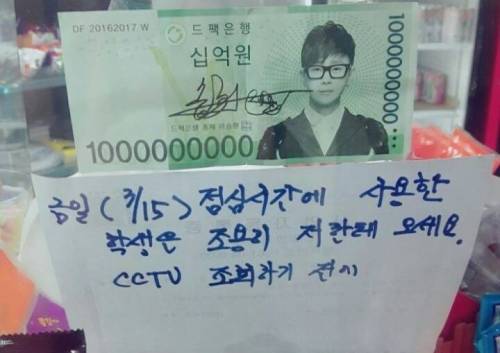 DF 20162017 W
드팩은행
십억원
드팩은행 총재
1000000000
1000000000
금일 (3/15) 점심시간에 사용한
학생은 조용히 저한테 오세요.
CCTV 조회하기 전에